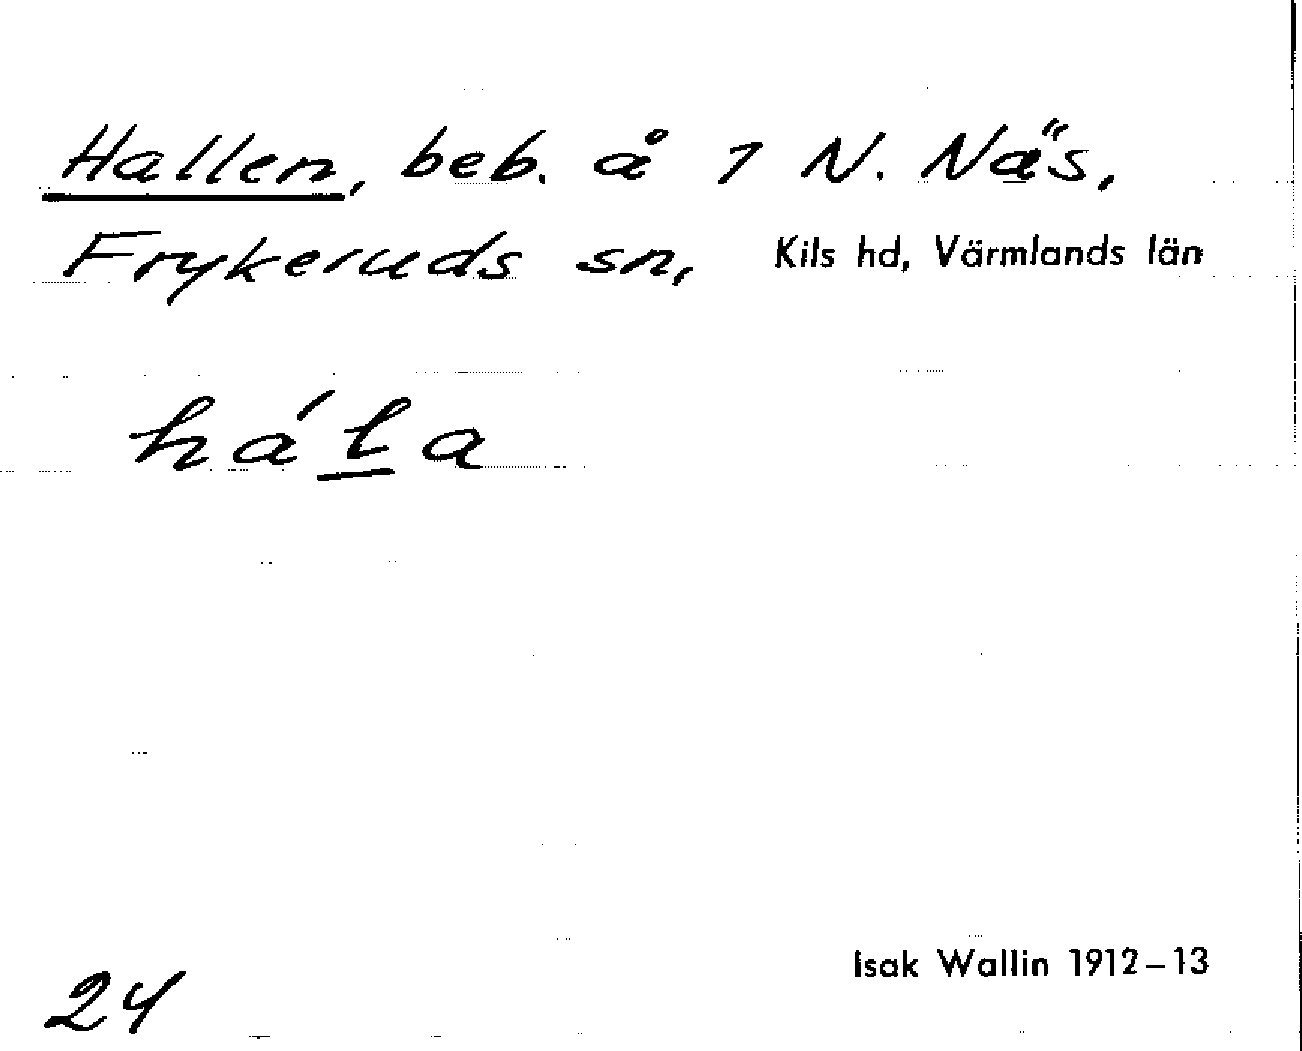 Hallen, beb. å 1 N. Näs,
Frykeruds sn, Kils hd, Värmlands län
háła
Isak Wallin 1912–13
24